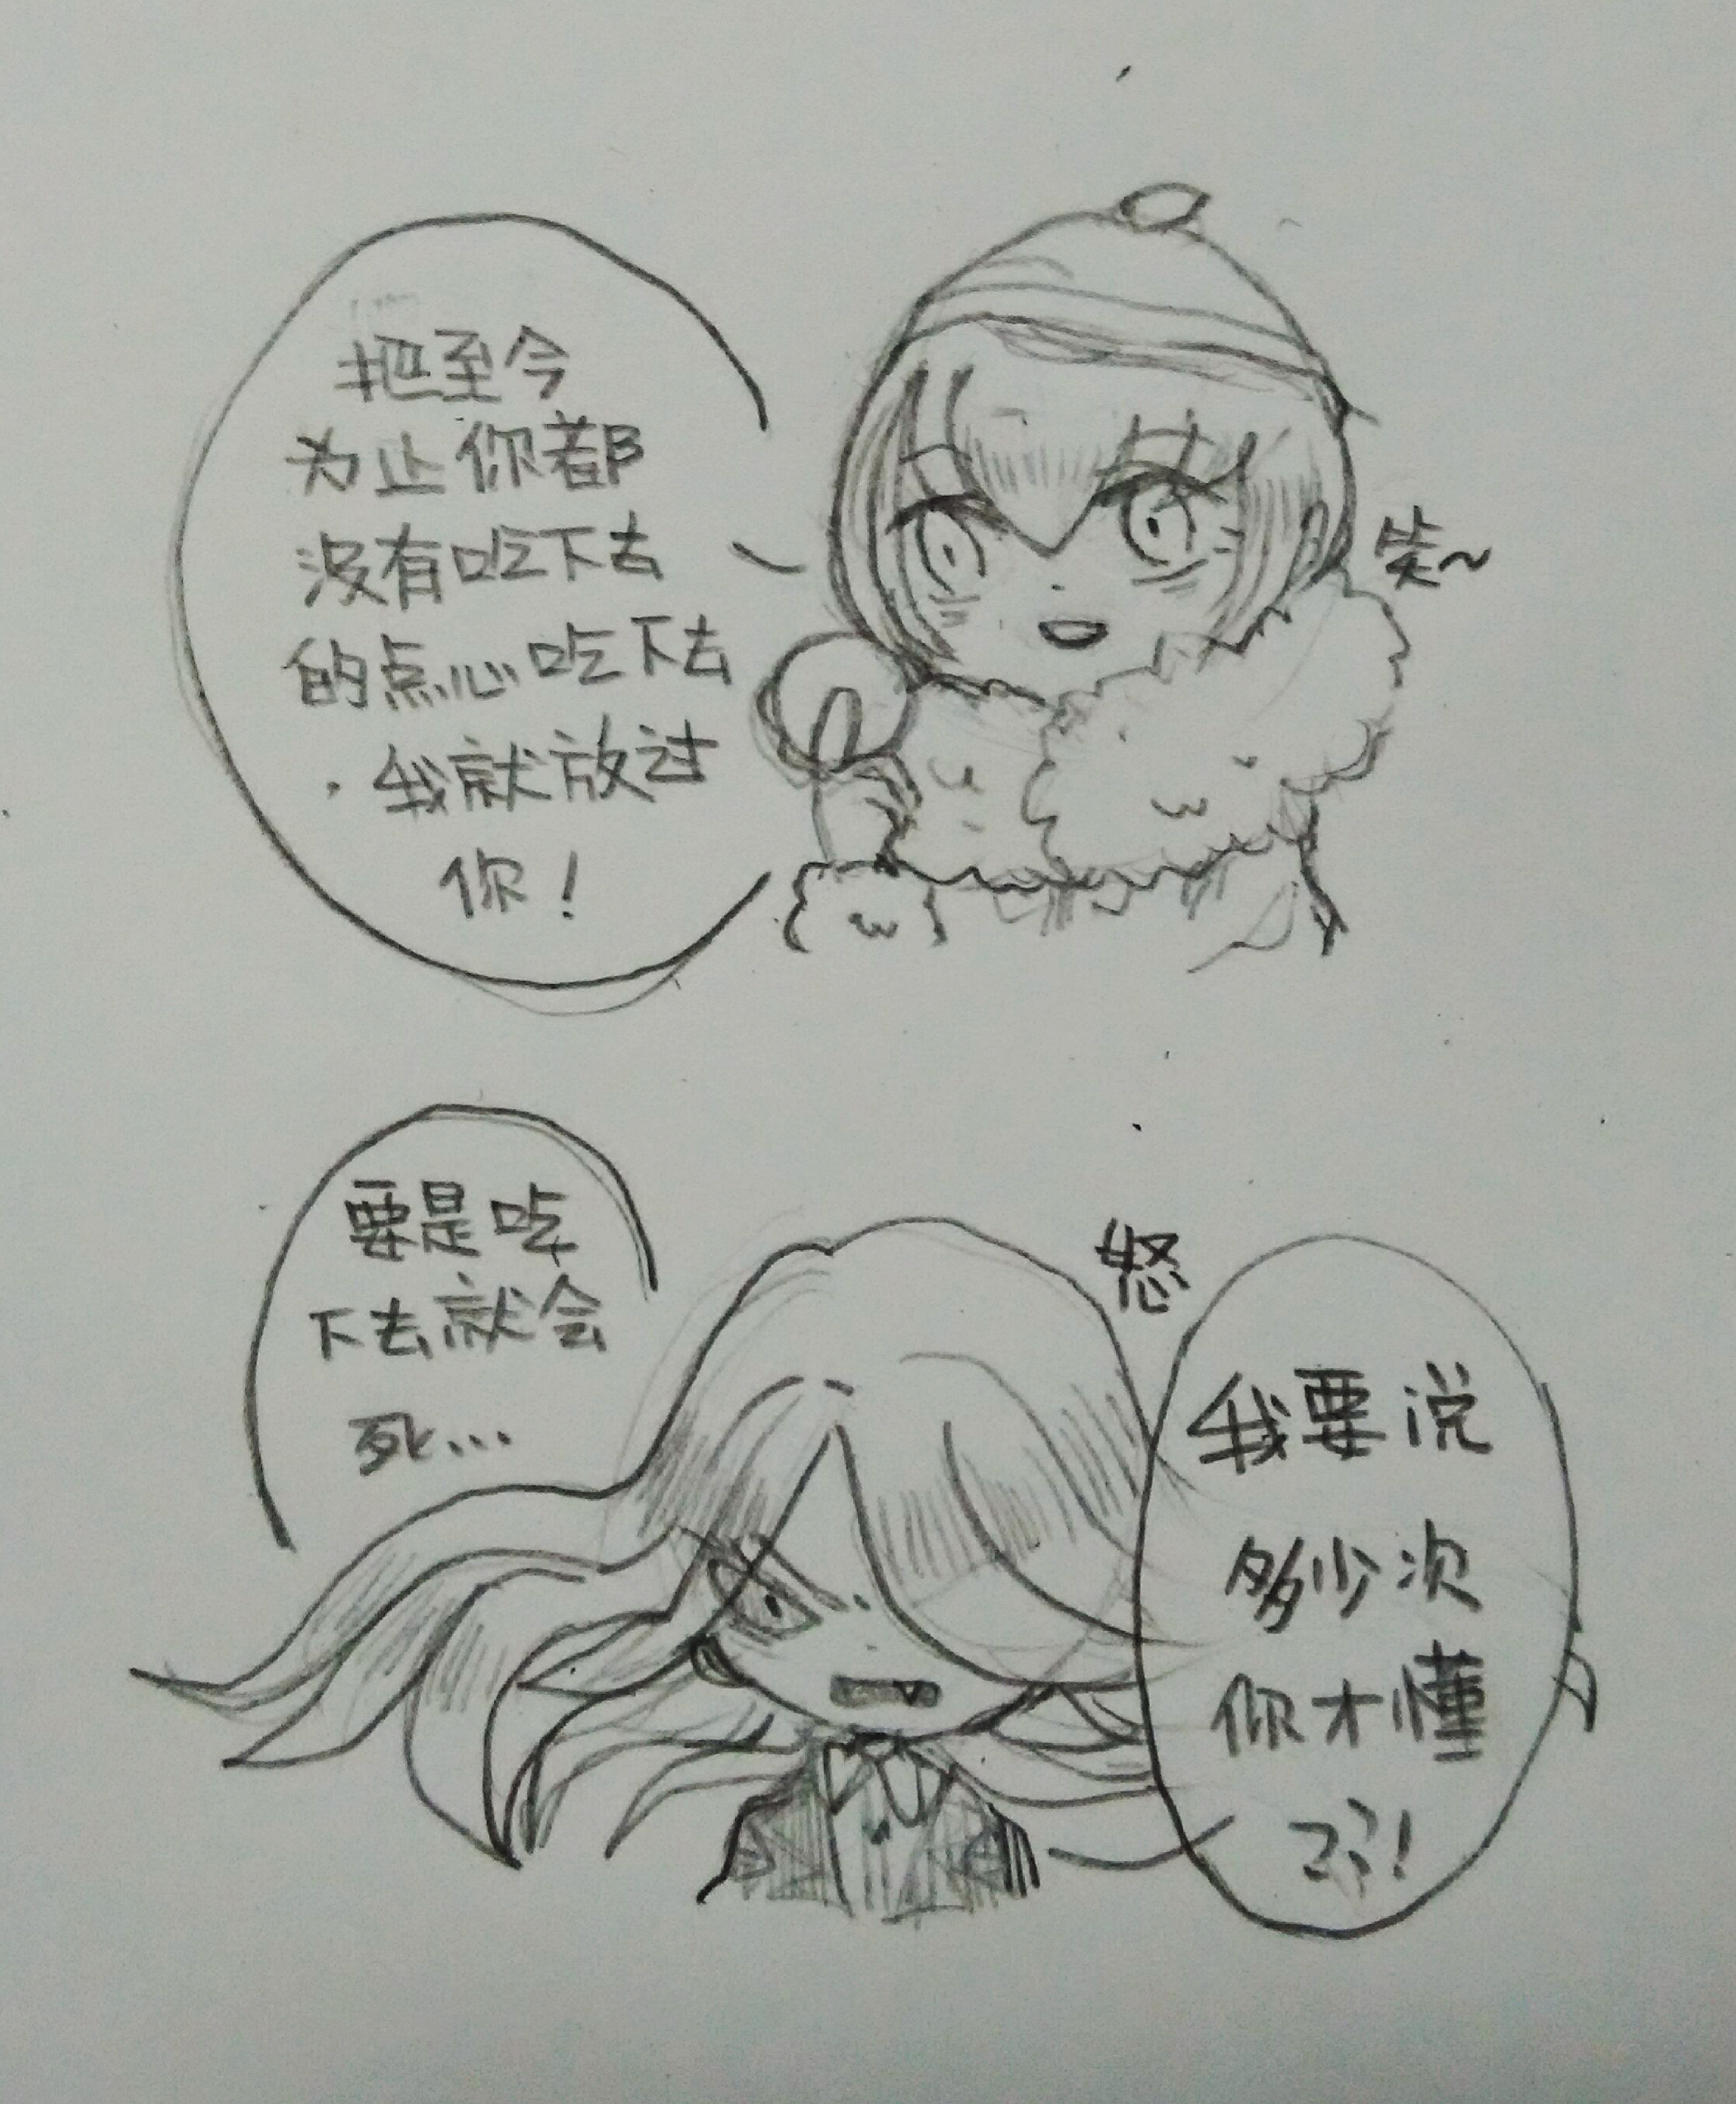 把至今
为止你都
没有吃下去
的点心吃下去
，我就放过
你！
笑~
要是吃
下去就会
死…
怒
我要说
多少次
你才懂